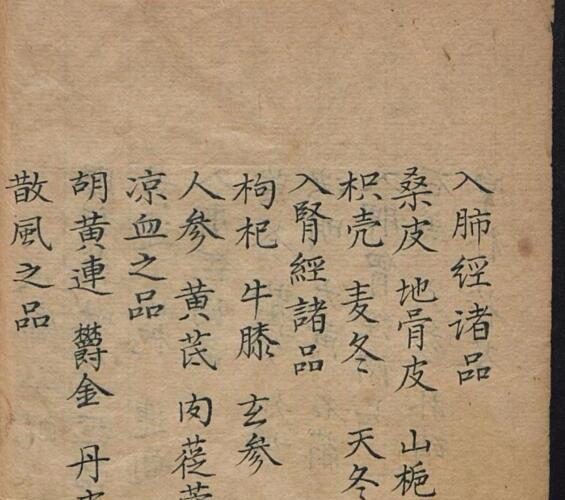 入肺經诸品
桑皮 地骨皮 山梔
枳壳 麦冬 天冬
入腎經諸品
枸杞 牛膝 玄参
人参 黄芪 肉蓯蓉
凉血之品
胡黄連 欝金 丹皮
散風之品